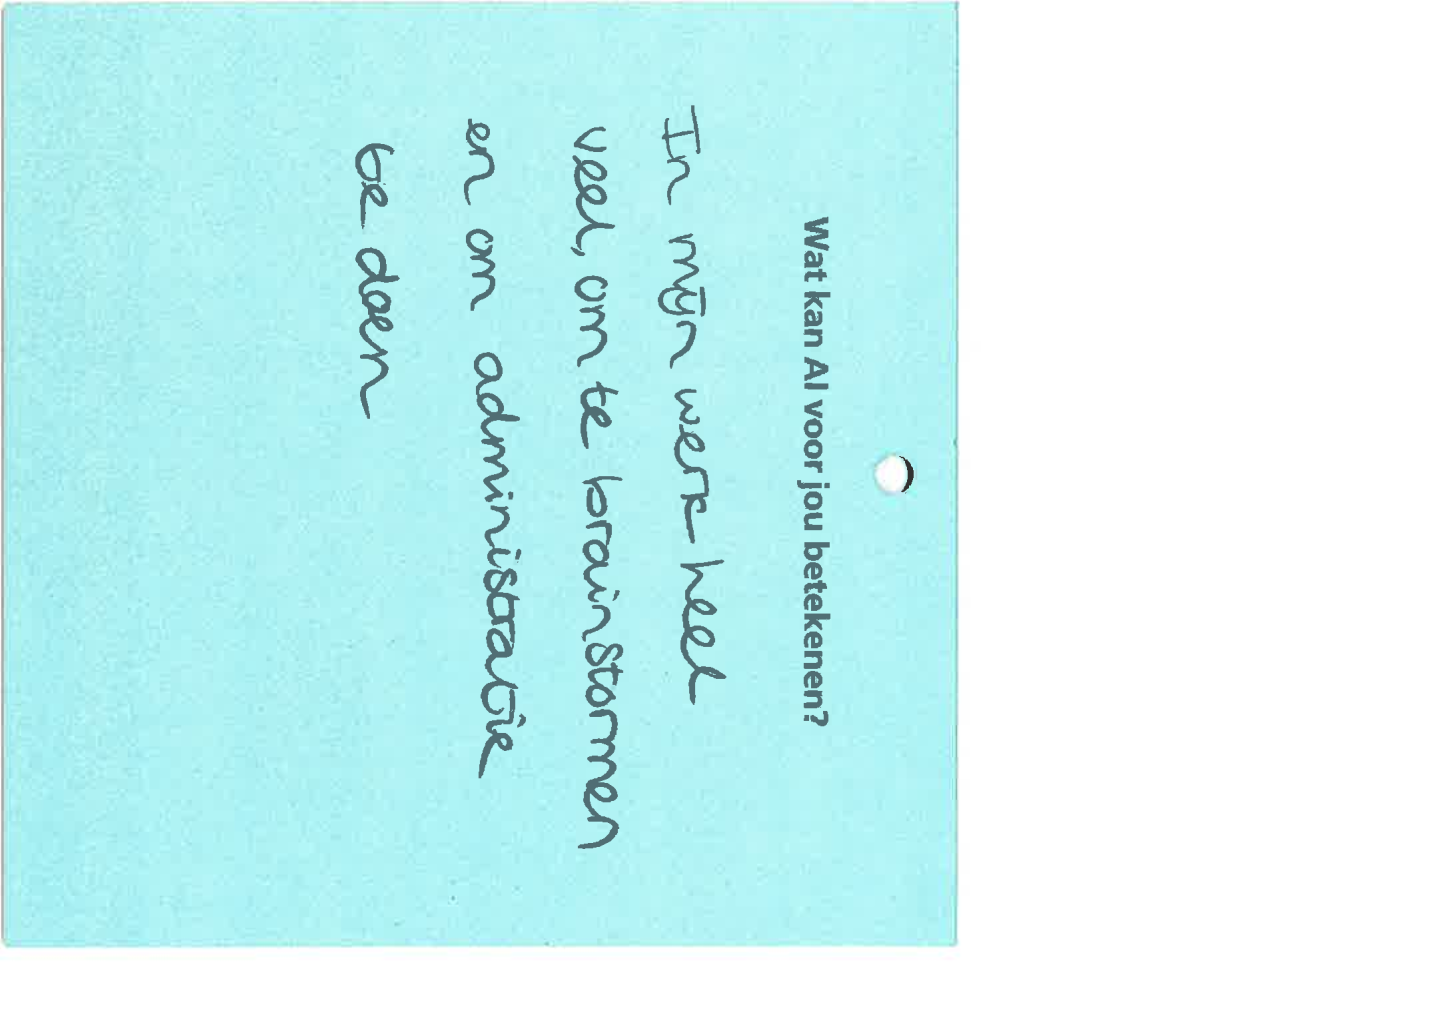 Wat kan AI voor jou betekenen?
In mijn werk heel
veel, om te brainstormen
en om administratie
te doen